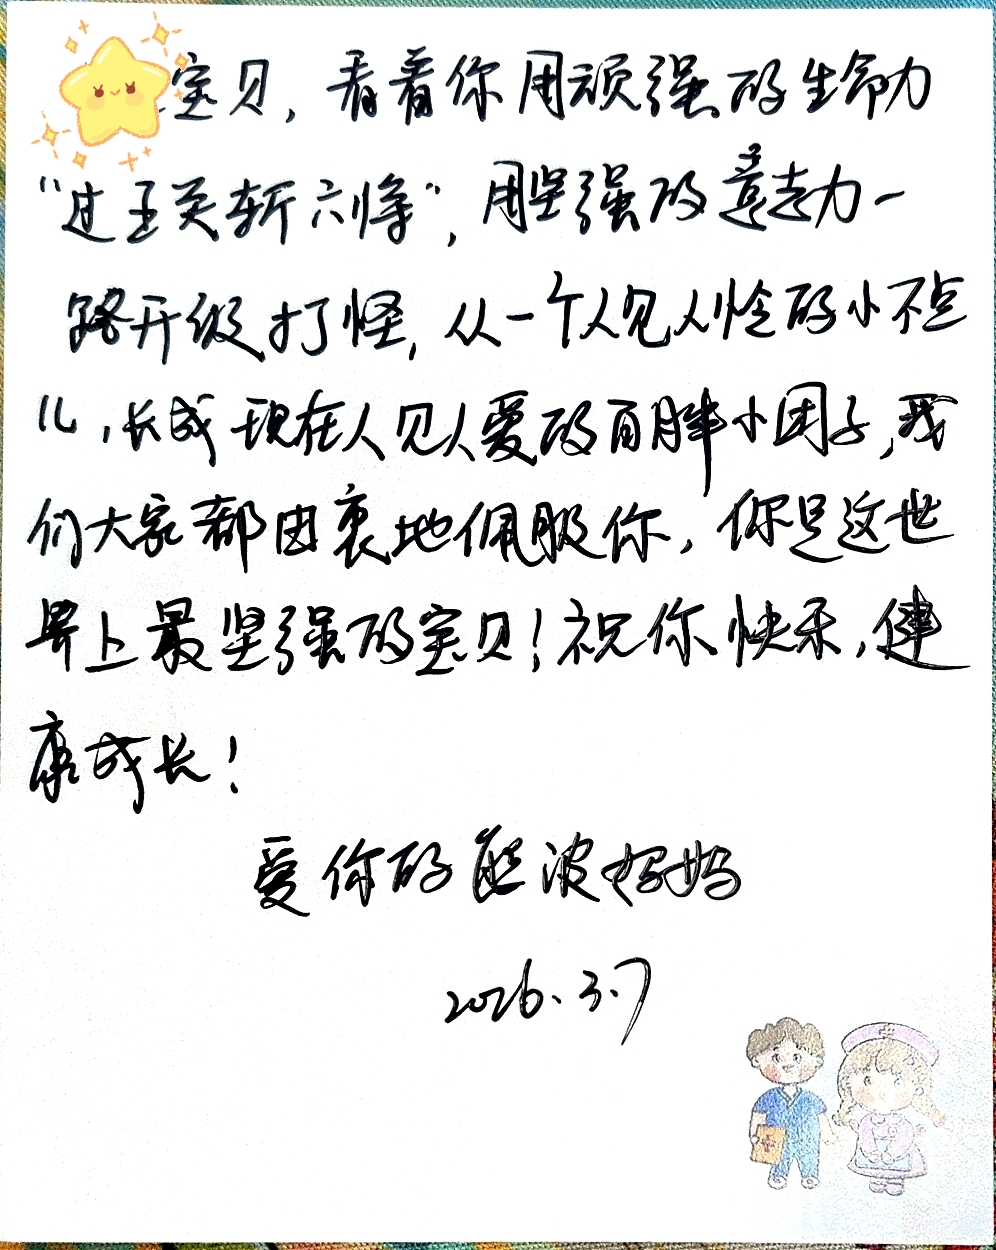 宝贝，看着你用顽强的生命力
“过五关斩六将”，用坚强的意志力一
路开级打怪，从一个人见人怜的小不点
儿，长成现在人见人爱的白胖小团子，我
们大家都由衷地佩服你，你是这世
界上最坚强的宝贝！祝你快乐，健
康成长！
爱你的熊波妈妈
2026.3.7